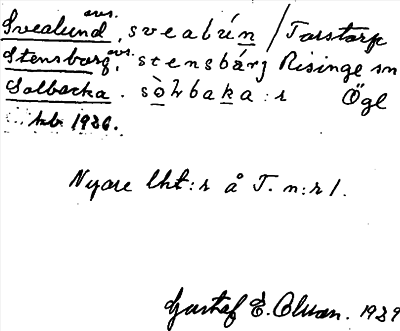 avs.
Svealund, sveabún / Torstorp
avs.
Stensborg, stensbárj Risinge sn
Solbacka. sòłbaka:r Ögl
tkb. 1936.
Nyare lht:r å T. n:r 1.
Gustaf E. Olsson. 1939